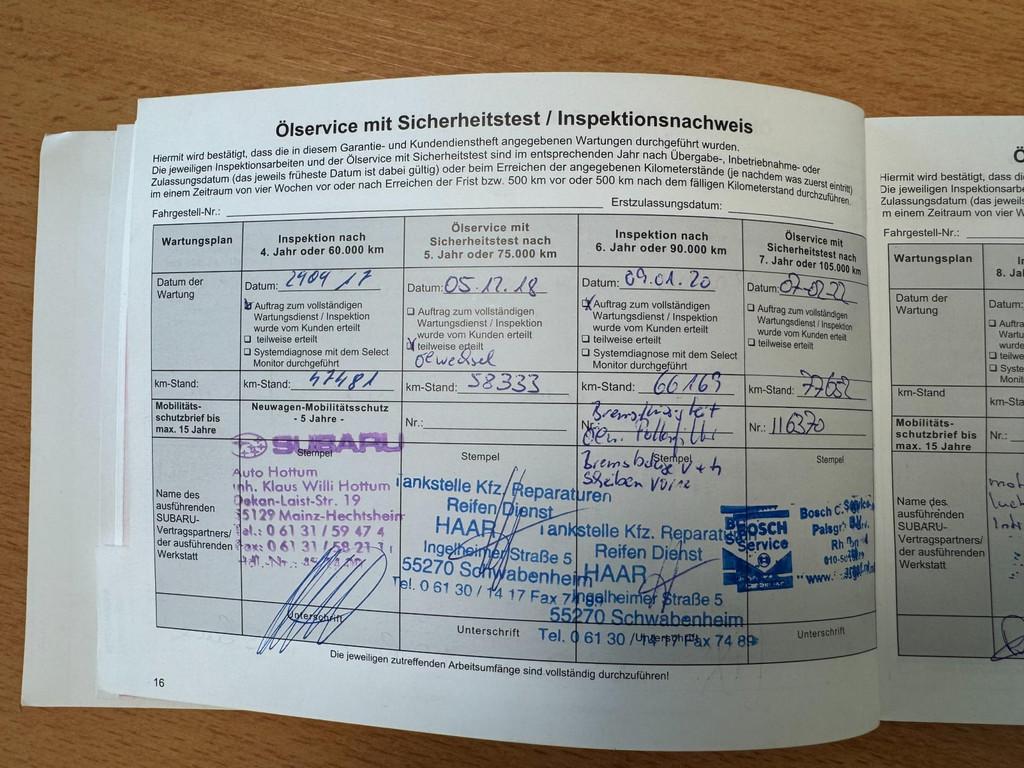 Ölservice mit Sicherheitstest / Inspektionsnachweis
Hiermit wird bestätigt, dass die in diesem Garantie- und Kundendienstheft angegebenen Wartungen durchgeführt wurden.
Die jeweiligen Inspektionsarbeiten und der Ölservice mit Sicherheitstest sind im entsprechenden Jahr nach Übergabe-, Inbetriebnahme- oder
Zulassungsdatum (das jeweils früheste Datum ist dabei gültig) oder beim Erreichen der angegebenen Kilometerstände (je nachdem was zuerst eintritt)
im einem Zeitraum von vier Wochen vor oder nach Erreichen der Frist bzw. 500 km vor oder 500 km nach dem fälligen Kilometerstand durchzuführen.
Fahrgestell-Nr.: Erstzulassungsdatum:
Wartungsplan
Inspektion nach
4. Jahr oder 60.000 km
Ölservice mit
Sicherheitstest nach
5. Jahr oder 75.000 km
Inspektion nach
6. Jahr oder 90.000 km
Ölservice mit
Sicherheitstest nach
7. Jahr oder 105.000 km
Datum der
Wartung
Datum:
Auftrag zum vollständigen
Wartungsdienst / Inspektion
wurde vom Kunden erteilt
teilweise erteilt
Systemdiagnose mit dem Select
Monitor durchgeführt
Datum: 05.12.18
Auftrag zum vollständigen
Wartungsdienst / Inspektion
wurde vom Kunden erteilt
teilweise erteilt
Ölwechsel
Datum: 09.01.20
Auftrag zum vollständigen
Wartungsdienst / Inspektion
wurde vom Kunden erteilt
teilweise erteilt
Systemdiagnose mit dem Select
Monitor durchgeführt
Datum:
Auftrag zum vollständigen
Wartungsdienst / Inspektion
wurde vom Kunden erteilt
teilweise erteilt
km-Stand:
km-Stand: 47481
km-Stand: 58333
km-Stand: 66169
km-Stand: 77652
Mobilitäts-
schutzbrief bis
max. 15 Jahre
Neuwagen-Mobilitätsschutz
- 5 Jahre -
Nr.:
Nr.:
Bremsflüssigkeit
Nr.: 116370
Name des
ausführenden
SUBARU-
Vertragspartners/
der ausführenden
Werkstatt
SUBARU
Stempel
Auto Hottum
Inh. Klaus Willi Hottum
Dekan-Laist-Str. 19
55129 Mainz-Hechtsheim
Tel.: 0 61 31 / 59 47 4
Unterschrift
Stempel
Tankstelle Kfz. Reparaturen
Reifen Dienst
HAAR
Ingelheimer Straße 5
55270 Schwabenheim
Tel. 0 61 30 / 14 17 Fax
Unterschrift
Stempel
Tankstelle Kfz. Reparaturen
Reifen Dienst
HAAR
Ingelheimer Straße 5
55270 Schwabenheim
Tel. 0 61 30 / 14 17 Fax 74 89
Unterschrift
Stempel
BOSCH
Service
Bosch C.
Unterschrift
Die jeweiligen zutreffenden Arbeitsumfänge sind vollständig durchzuführen!
16
Hiermit wird bestätigt, dass
Die jeweiligen
Zulassungsdatum (das
m einem Zeitraum von vier
Fahrgestell-Nr.:
Wartungsplan
8.
Datum der
Wartung
Datum:
km-Stand
Mobilitäts-
schutzbrief bis
max. 15 Jahre
Nr.:
Name des
ausführenden
SUBARU-
Vertragspartners/
der ausführenden
Werkstatt